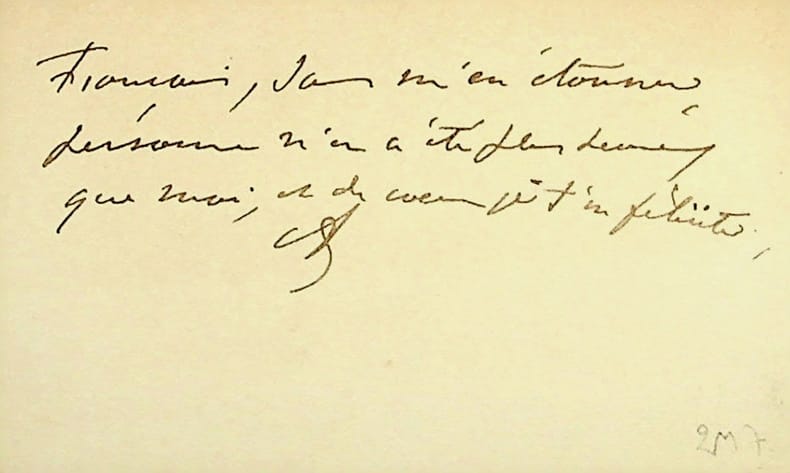 Français, sans m'en étonner,
personne n'en a été plus heureux
que moi, et de coeur je t'en félicite,
2M7